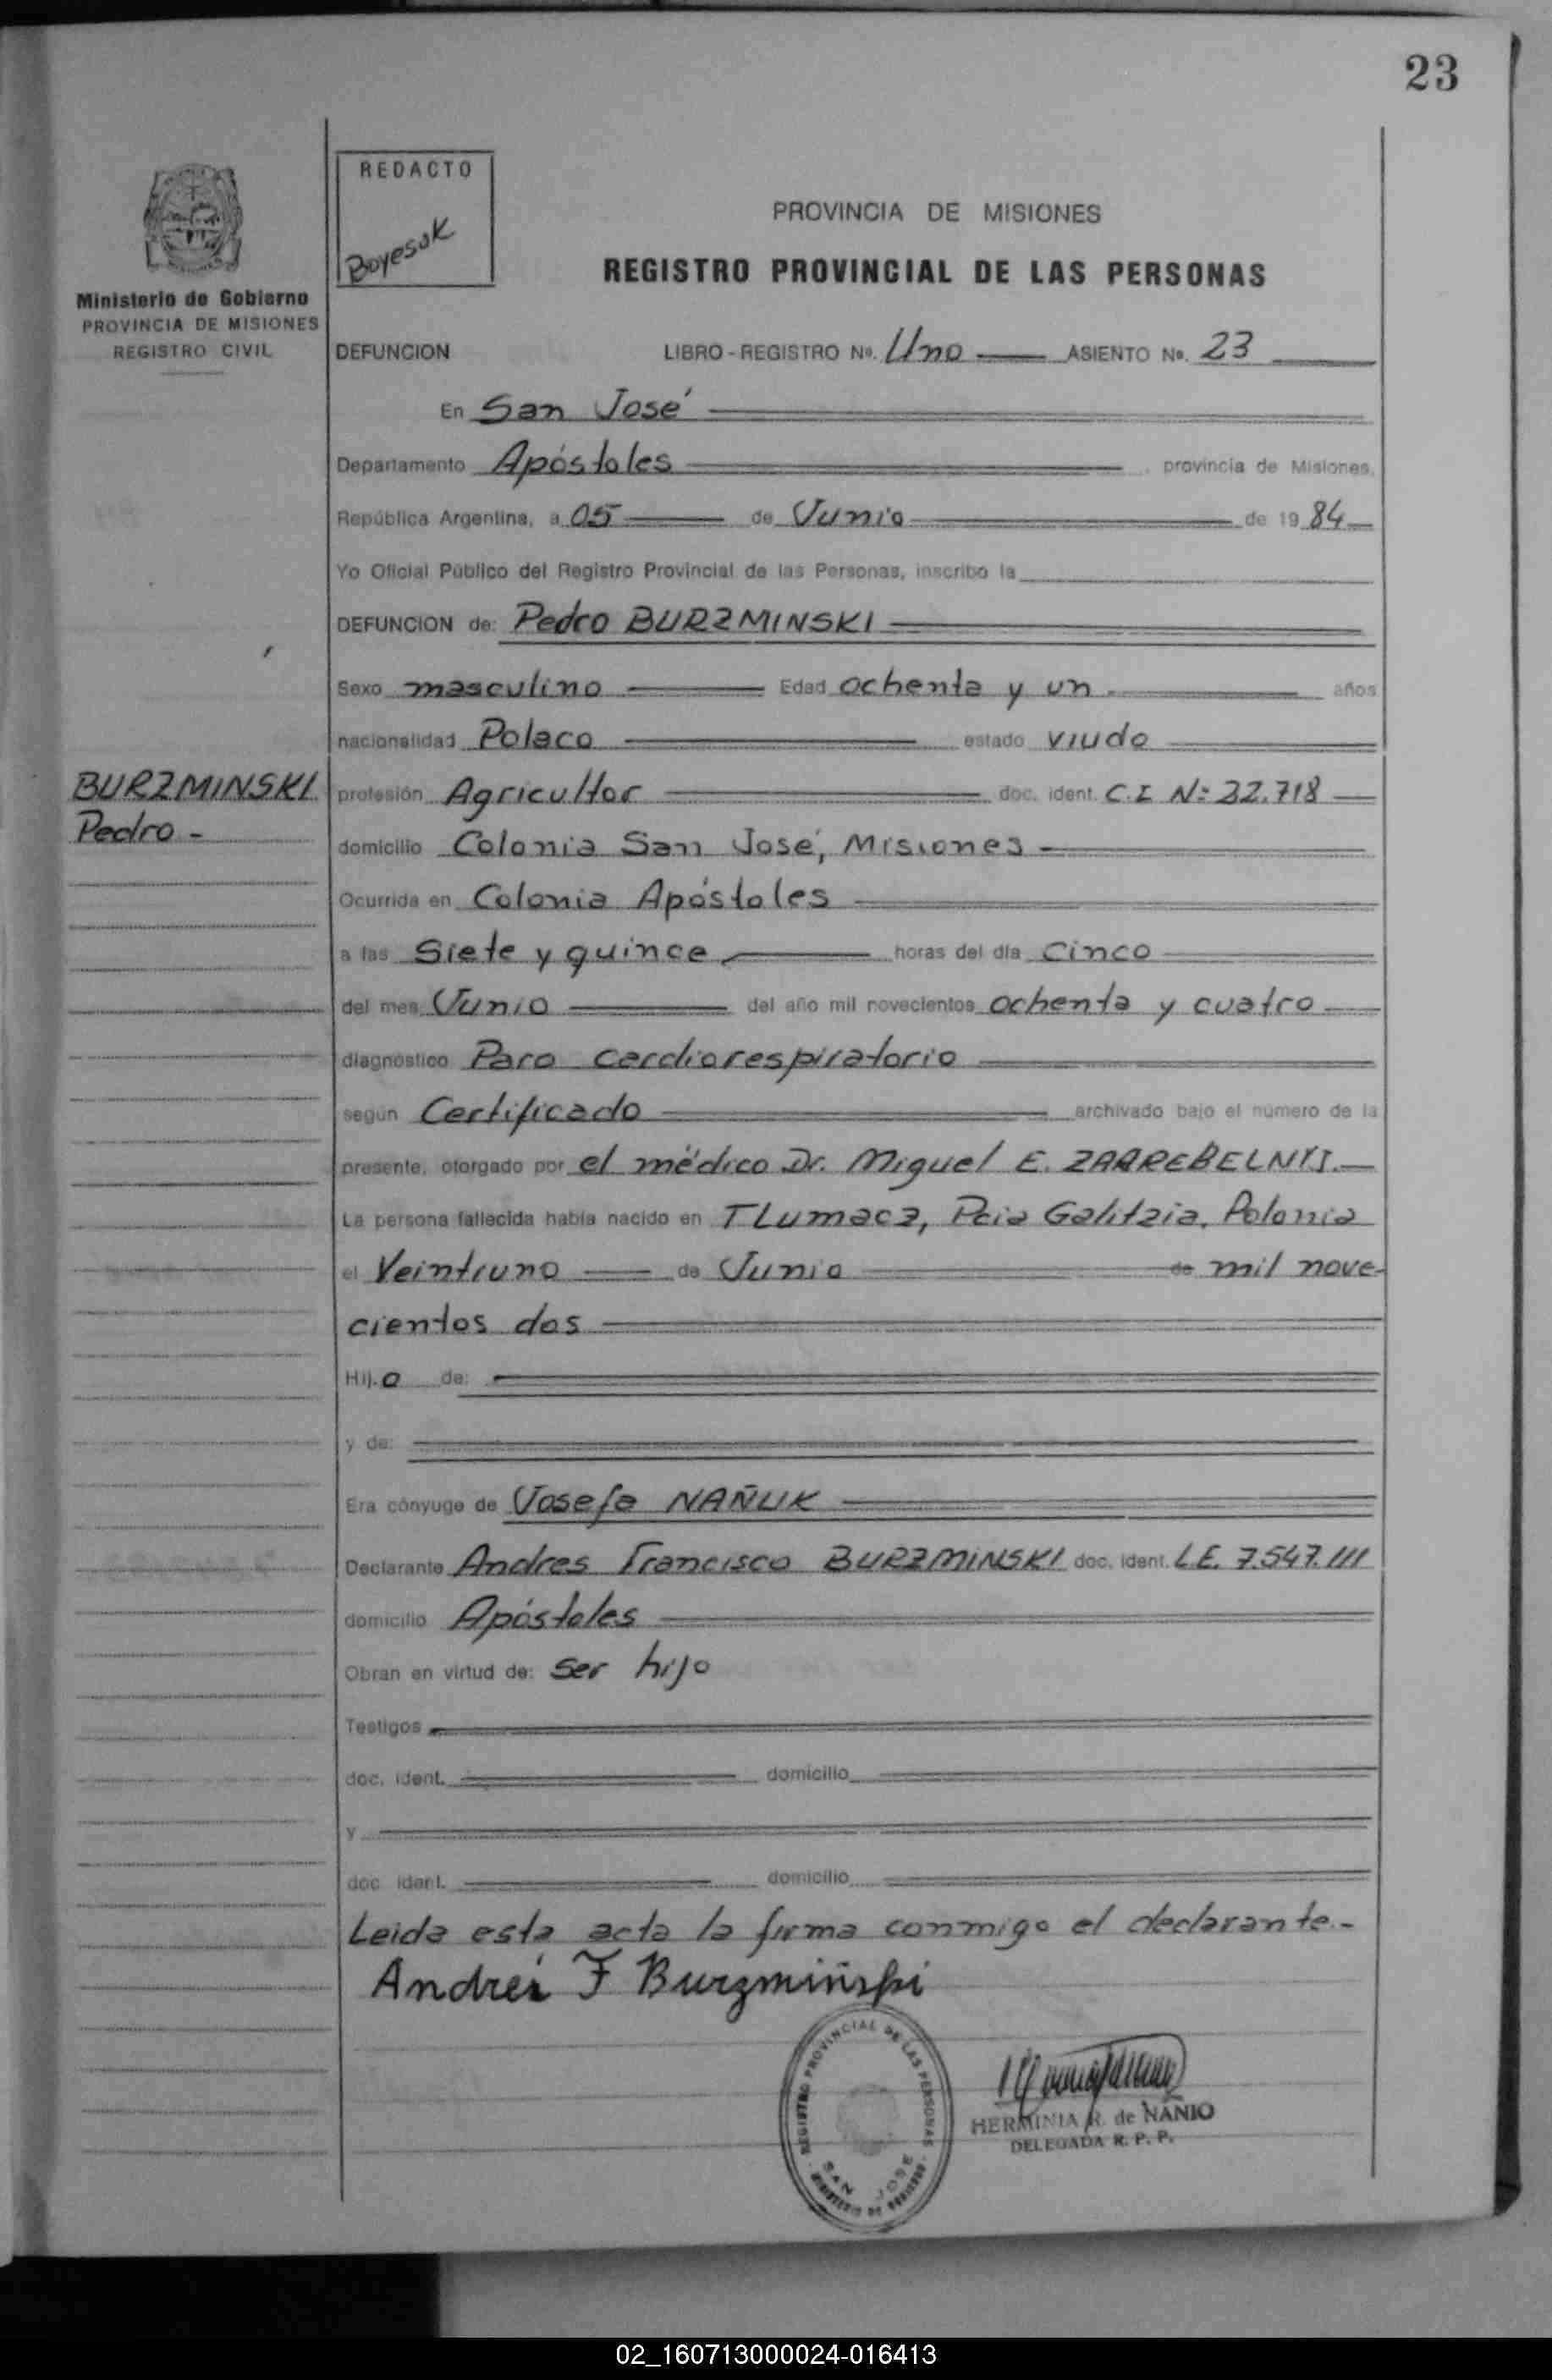 23
REDACTO
Boyesak
Ministerio de Gobierno
PROVINCIA DE MISIONES
REGISTRO CIVIL
PROVINCIA DE MISIONES
REGISTRO PROVINCIAL DE LAS PERSONAS
DEFUNCION LIBRO - REGISTRO Nº. Uno ASIENTO Nº. 23
En San José
Departamento Apóstoles provincia de Misiones,
República Argentina, a 05 de Junio de 19 84
Yo Oficial Público del Registro Provincial de las Personas, inscribo la
DEFUNCION de: Pedro BURZMINSKI
Sexo masculino Edad ochenta y un años
nacionalidad Polaco estado viudo
BURZMINSKI
Pedro -
profesión Agricultor doc. ident. C.I Nº 32.718
domicilio Colonia San José, Misiones
Ocurrida en Colonia Apóstoles
a las Siete y quince horas del día Cinco
del mes Junio del año mil novecientos ochenta y cuatro
diagnóstico Paro cardiorespiratorio
según Certificado archivado bajo el número de la
presente, otorgado por el médico Dr. Miguel E.
La persona fallecida había nacido en TLumacz, Pcia Galitzia, Polonia
el Veintiuno de Junio de mil nove-
cientos dos
Hij.o de:
y de:
Era cónyuge de Josefa NAÑUK
Declarante Andres Francisco BURZMINSKI doc. ident. L.E. 7.547.111
domicilio Apóstoles
Obran en virtud de: Ser hijo
Testigos
doc. ident. domicilio
y
doc. ident. domicilio
Leida esta acta la firma conmigo el declarante.-
Andrés F Burzmiński
REGISTRO PROVINCIAL DE LAS PERSONAS
SAN JOSE
MINISTERIO DE GOBIERNO
HERMINIA R. de NANIO
DELEGADA R. P. P.
02_160713000024-016413